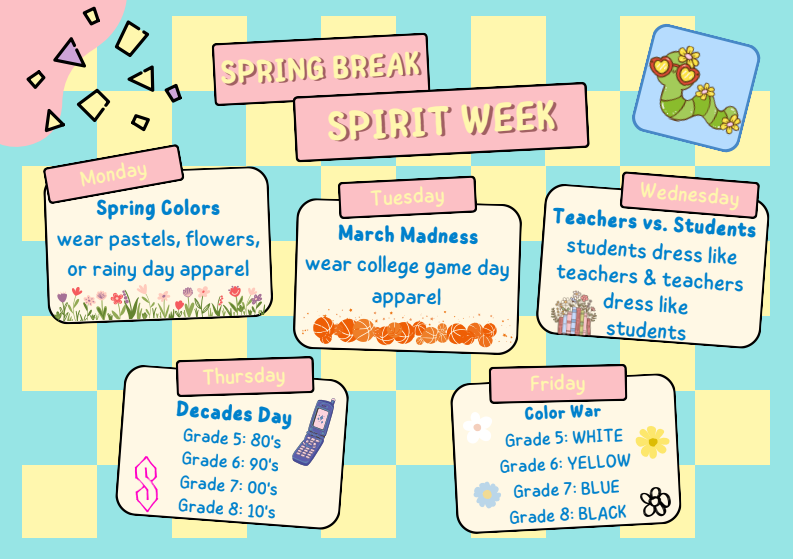 SPRING BREAK
SPIRIT WEEK
Monday
Spring Colors
wear pastels, flowers,
or rainy day apparel
Tuesday
March Madness
wear college game day
apparel
Wednesday
Teachers vs. Students
students dress like
teachers & teachers
dress like
students
Thursday
Decades Day
Grade 5: 80's
Grade 6: 90's
Grade 7: 00's
Grade 8: 10's
Friday
Color War
Grade 5: WHITE
Grade 6: YELLOW
Grade 7: BLUE
Grade 8: BLACK